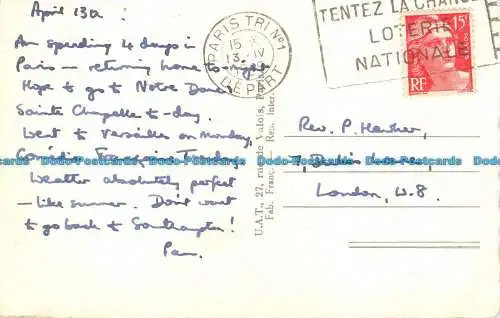 April 13th :
Am spending 4 days in
Paris — returning home to-night.
Hope to go to Notre Dame
Sainte Chapelle to-day.
Went to Versailles on Monday,
Comédie Française Tuesday
Weather absolutely perfect
— like summer. Don't want
to go back to Southampton!
Pam.
PARIS TRI N°1
15
13 IV
DÉPART
TENTEZ LA CHANCE
LOTERIE
NATIONALE
15F
RF
U.A.T., 27, rue de Valois,
Fab. Franç. — Rep. Inter.
Rev. P. Hawker,
7,
London, W.8.
Docards-Postcards Docards-Postcards Docards-Postcards